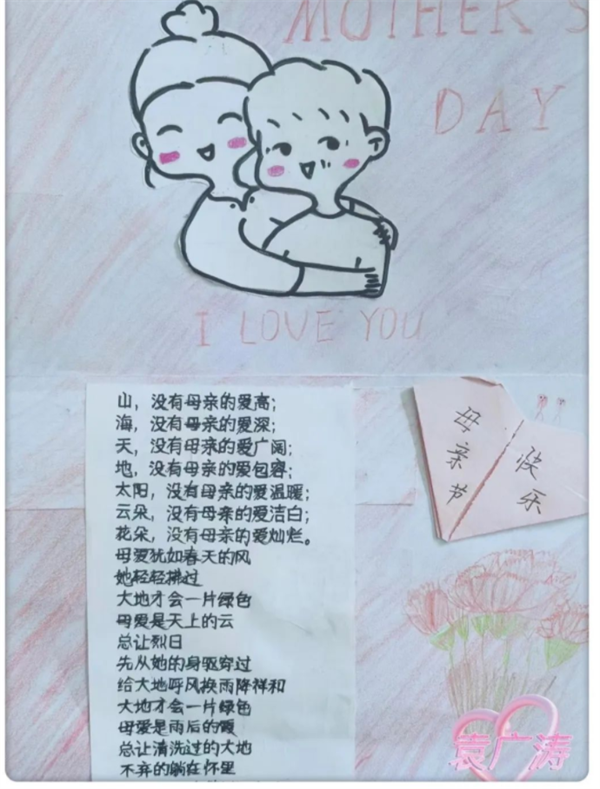 MOTHER'S
DAY
I LOVE YOU
山，没有母亲的爱高；
海，没有母亲的爱深；
天，没有母亲的爱广阔；
地，没有母亲的爱包容；
太阳，没有母亲的爱温暖；
云朵，没有母亲的爱洁白；
花朵，没有母亲的爱灿烂。
母爱犹如春天的风
她轻轻拂过
大地才会一片绿色
母爱是天上的云
总让烈日
先从她的身躯穿过
给大地呼风换雨降祥和
大地才会一片绿色
母爱是雨后的霞
总让清洗过的大地
不弃的躺在怀里
母亲节
快乐
袁广涛